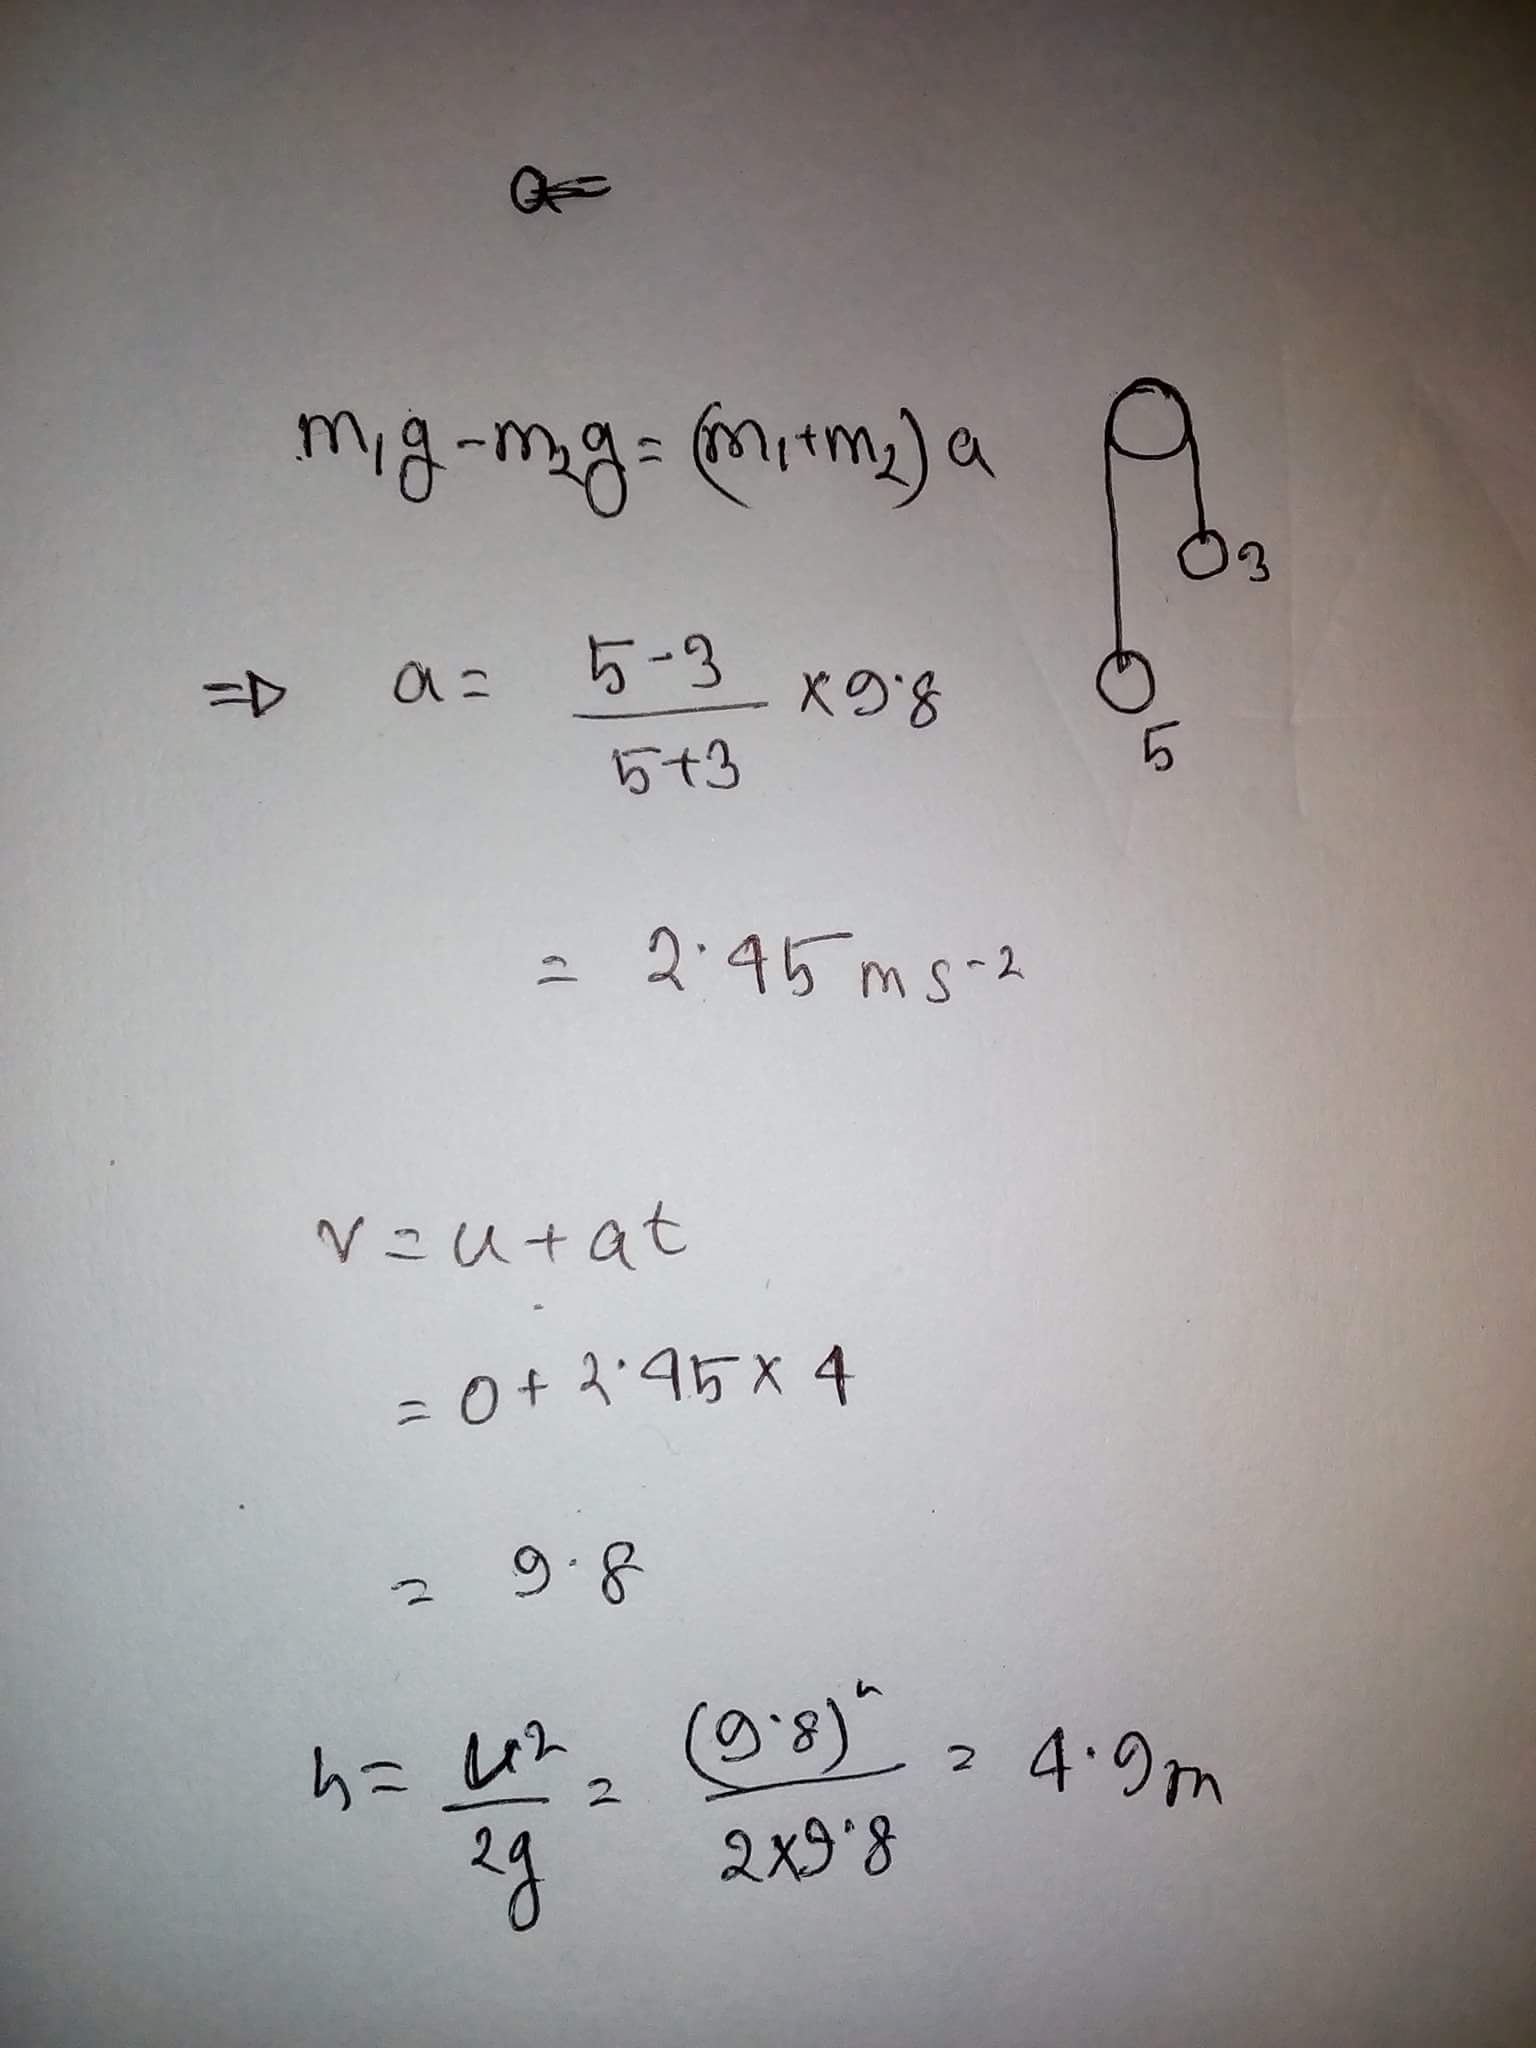 a=
m₁g-m₂g=(m₁+m₂)a
3
⇒ a= 5-3/5+3 ×9.8
5
= 2.45 ms⁻²
v=u+at
=0+2.45×4
= 9.8
h= u²/2g = (9.8)²/2×9.8 = 4.9m